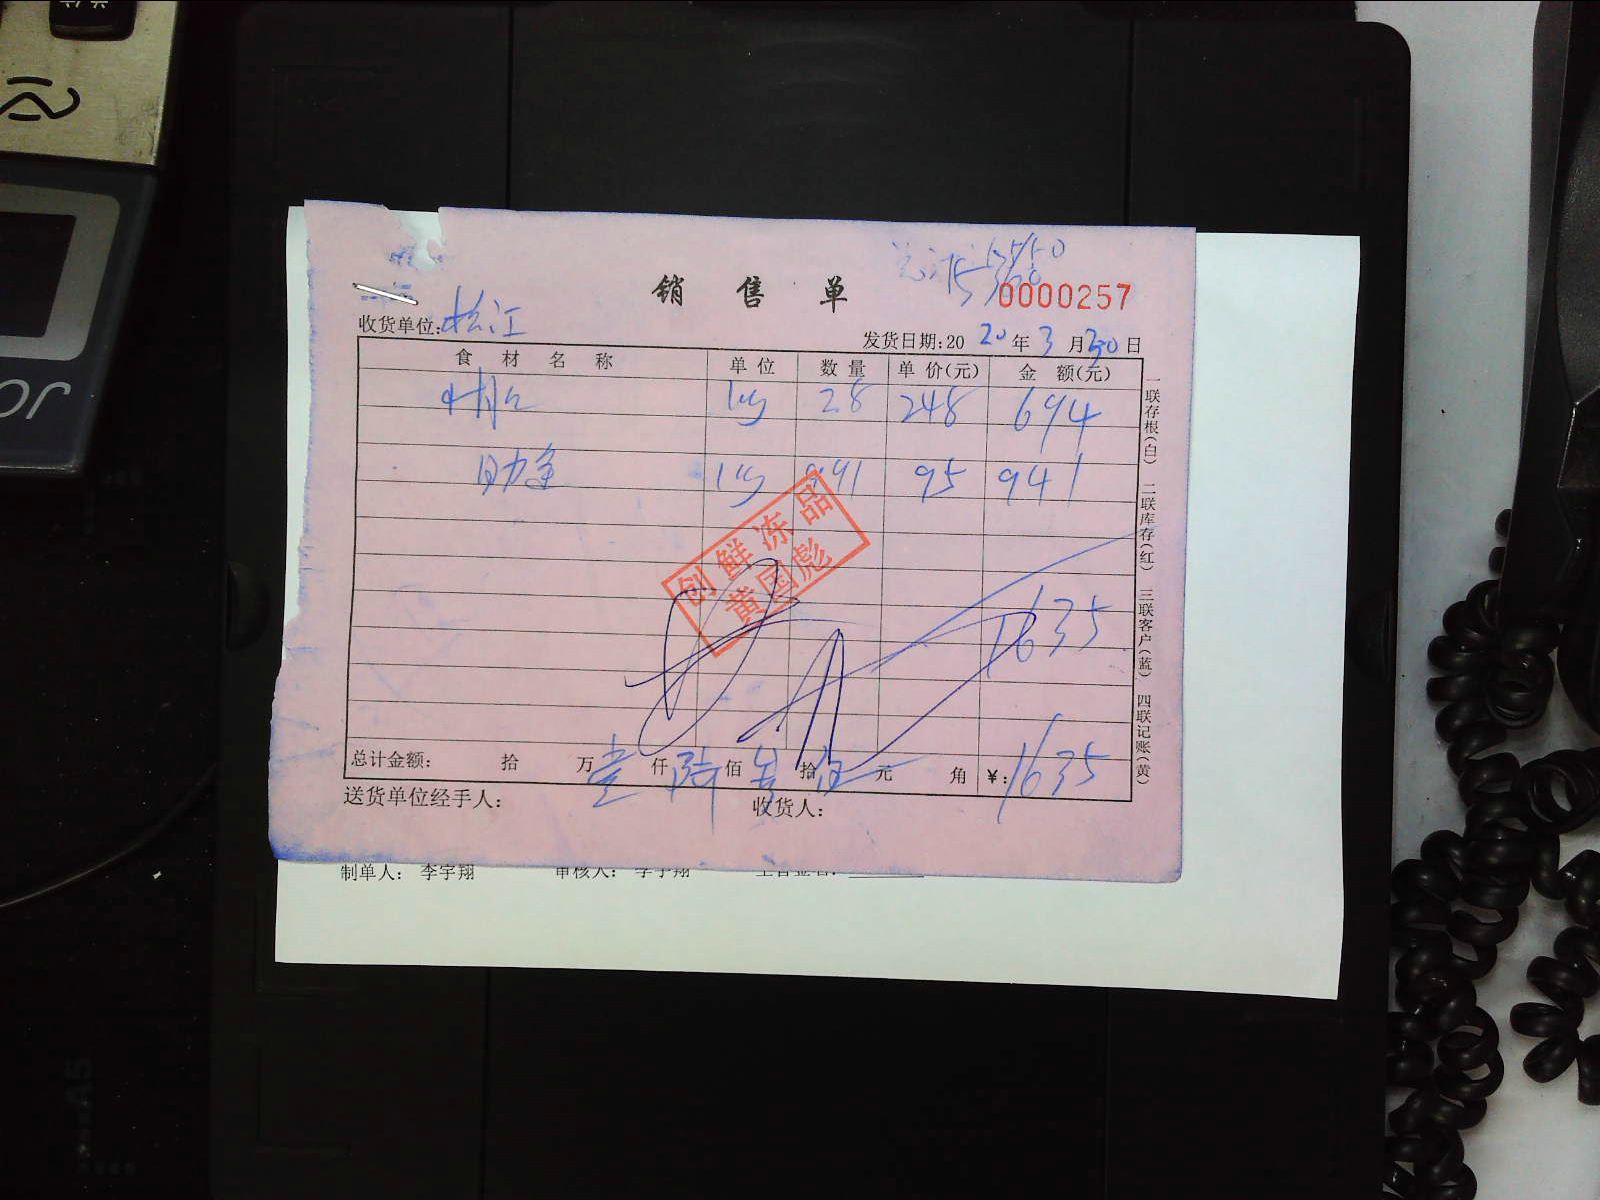 销售单
0000257
收货单位: 松江
发货日期: 2020年3月30日
食材名称 单位 数量 单价(元) 金额(元)
28 248 694
95 941
创鲜冻品
黄国彪
1635
总计金额: 拾 万 壹 仟 陆 佰 拾 伍 元 角 ¥: 1635
送货单位经手人: 收货人:
一联存根(白) 二联库存(红) 三联客户(蓝) 四联记账(黄)
制单人: 李宇翔 审核人: 李宇翔